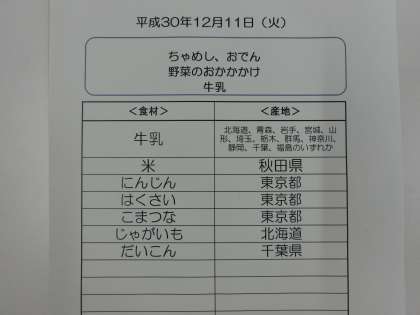 平成30年12月11日（火）
ちゃめし、おでん
野菜のおかかかけ
牛乳
＜食材＞ ＜産地＞
牛乳 北海道、青森、岩手、宮城、山
形、埼玉、栃木、群馬、神奈川、
静岡、千葉、福島のいずれか
米 秋田県
にんじん 東京都
はくさい 東京都
こまつな 東京都
じゃがいも 北海道
だいこん 千葉県